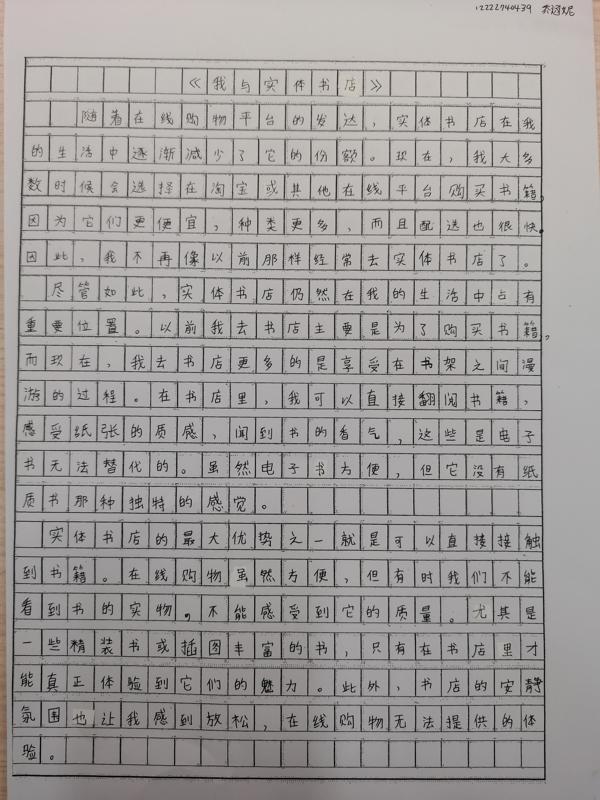 12222740439 李泓妮
《我与实体书店》
随着在线购物平台的发达，实体书店在我
的生活中逐渐减少了它的份额。现在，我大多
数时候会选择在淘宝或其他在线平台购买书籍，
因为它们更便宜，种类更多，而且配送也很快。
因此，我不再像以前那样经常去实体书店了。
尽管如此，实体书店仍然在我的生活中占有
重要位置。以前我去书店主要是为了购买书籍，
而现在，我去书店更多的是享受在书架之间漫
游的过程。在书店里，我可以直接翻阅书籍，
感受纸张的质感，闻到书的香气，这些是电子
书无法替代的。虽然电子书方便，但它没有纸
质书那种独特的感觉。
实体书店的最大优势之一就是可以直接接触
到书籍。在线购物虽然方便，但有时我们不能
看到书的实物，不能感受到它的质量。尤其是
一些精装书或插图丰富的书，只有在书店里才
能真正体验到它们的魅力。此外，书店的安静
氛围也让我感到放松，在线购物无法提供的体
验。